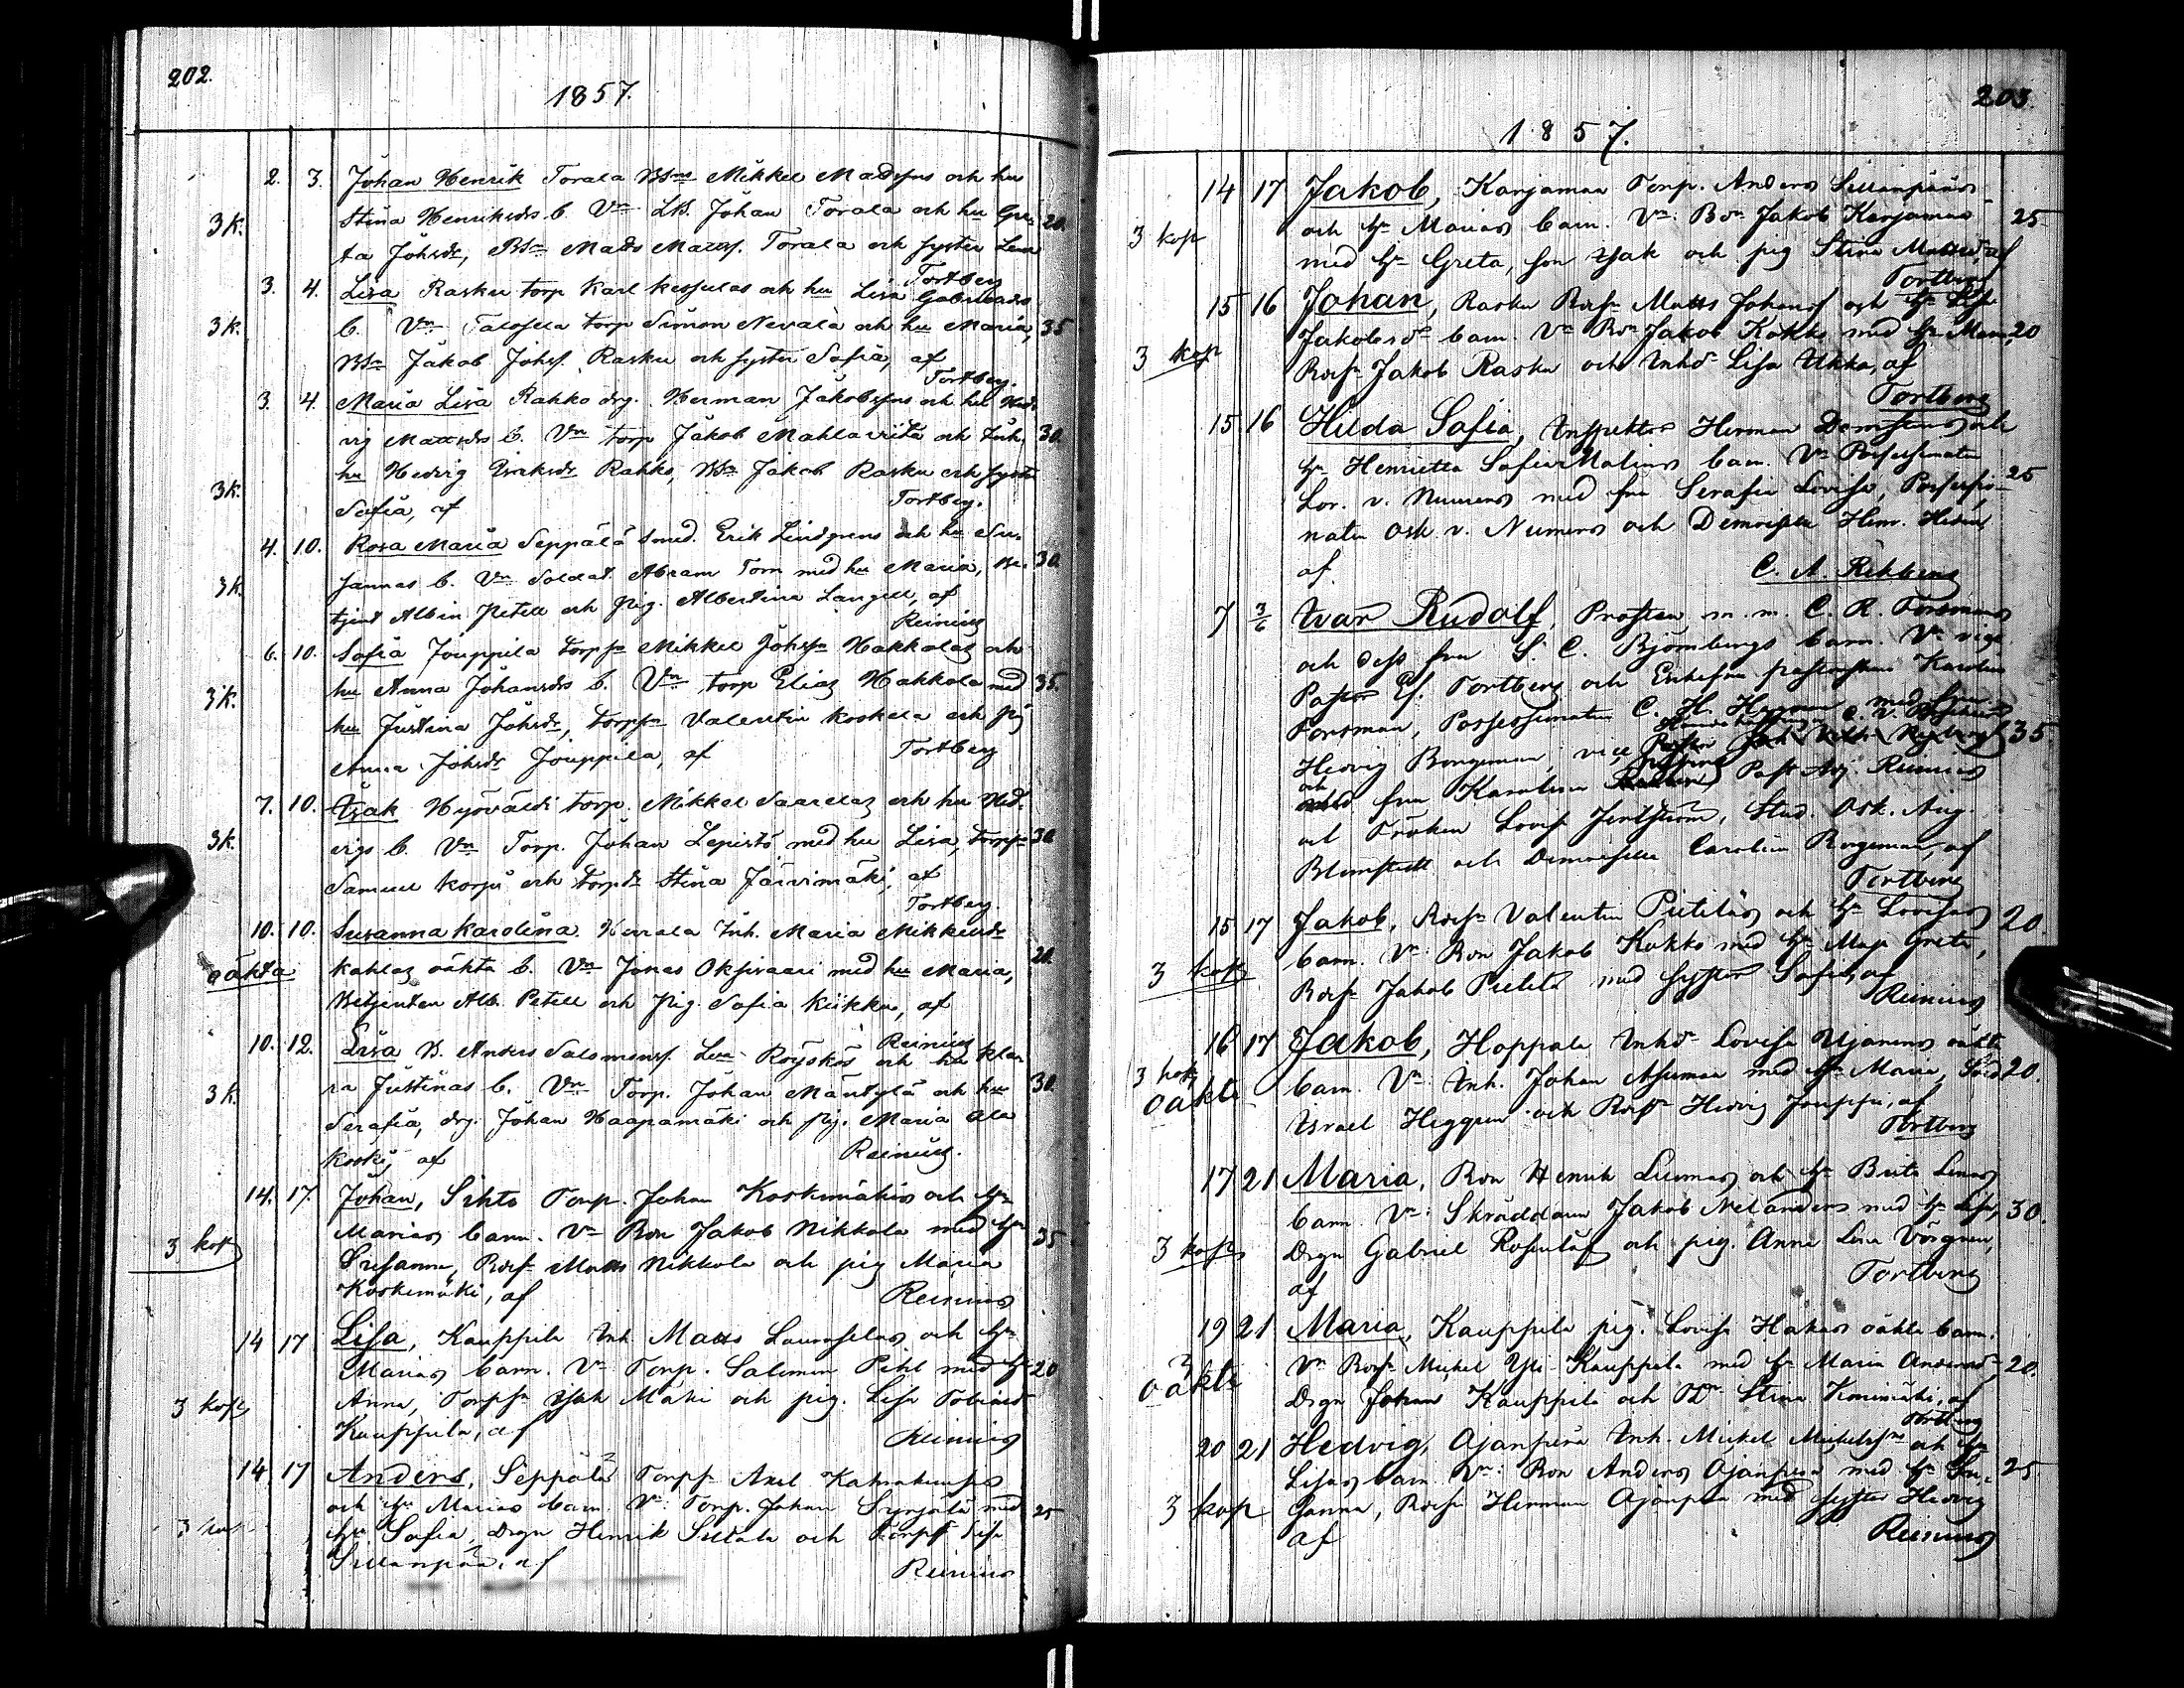 202.
1857.
2. 3. Johan Henrik Torala Bsns Mikkel Madsens och hu
3k. Stina Henriksdrs b. Vn LB. Johan Torala och hu Gre- 20.
ta Johsdr, Bsn Mads Mattss. Torala och syster Lena
Tortberg
3. 4. Lisa Rasku torp Karl Kessulas och hu Lisa Gabrielsdrs
3k. b. Vn Talosela torp Simon Nevala och hu Maria, 35
Bsn Jakob Johss. Rasku och syster Sofia, af
Tortberg.
3. 4. Maria Lisa Rahko drg. Herman Jakobssns och hu Hed-
vig Mattsdrs b. Vn torp Jakob Mahlavirta och Inh. 30.
hu Hedvig Eriksdr Rahko, Bsn Jakob Rasku och syster
3k. Sofia, af Tortberg.
4. 10. Rosa Maria Seppälä smed. Erik Lindgrens och hu Su-
3k. sannas b. Vn Soldat Abram Torn med hu Maria, Be- 30.
tjent Albin Petell och pig. Albertina Langell, af
Reinius
6. 10. Sofia Jouppila torpsn Mikkel Johssn Hakkolas och
3k. hu Anna Johansdrs b. Vn torp Elias Hakkola med 35.
hu Justina Johsdr, torpsn Valentin Koskela och pig
Anna Johsdr Jouppila, af Tortberg
7. 10. Isak Hyövälti torp. Mikkel Saarelas och hu Hed-
3k. vigs b. Vn Torp. Johan Lepistö med hu Lisa, torpsn 30
Samuel Korpi och torpdr Stina Järvimäki, af
Tortberg.
10. 10. Susanna Karolina. Kurala Inh. Maria Mikkelsdr
oäkta Kahlas oäkta b. Vn Jonas Oksivaari med hu Maria, 20.
Betjenten Alb. Petell och pig. Sofia Kiikku, af
Reinius
10. 12. Lisa B. Anders Salomonss. Röyskös och hu Kla-
3k. ra Justinas b. Vn Torp. Johan Mäntylä och hu 30.
Serafia, drg. Johan Haapamäki och pig. Maria Ala
koski, af Reinius.
14. 17. Johan, Sihto Torp. Johan Koskimäkis och hu
3 kop Marias barn. Vn Bon Jakob Nikkola med hu 35
Susanna, Bdsn Matts Nikkola och pig Maria
Koskimäki, af Reinius
14 17 Lisa, Kauppila Inh. Matts Lauroselas och hu
Marias barn. Vn Torp. Salomon Pihl med hu 20
3 kop Anna, Torpsn Isak Mäki och pig. Lisa Tobiasd
Kauppila, af Reinius
14 17 Anders, Seppälä Torpsn Axel
och hu Marias barn. Vn Torp. Johan Syrjälä med 25
3 kop hu Sofia, Drgn Henrik Sillala och Torpdr Lisa
Sillanpää, af Reinius
203.
1857.
14 17 Jakob, Karjamaa Torp. Anders Sillanpääs
3 kop och hu Marias barn. Vn: Bon Jakob Karjamaa 25
med hu Greta, son Isak och pig Stina Mattsd, af
Tortberg
15 16 Johan, Rasku Bdsn Matts Johanss och hu Lisa
Jakobsds barn. Vn Bon Jakob Kokko med hu Maria, 20
3 kop Bdsn Jakob Rasku och Inhdr Lisa Ukko, af
Tortberg
15. 16 Hilda Sofia, Inspektor Herman och
hu Henrietta Sofia Malins barn. Vn Possessionaten
Lor. v. Numers med fru Serafia Lovisa, Possessio- 25
naten Osk v. Numers och Demoiselle Henr.
af C. A. Rehberg
7 3/6 Ivar Rudolf, Prosten m. m. C. R. Forsmans
och dess fru S. C. Björnbergs barn. Vn vice
Pastor Es. Tortberg och Enkefru prostinnan Karolina
Forsman, Possessionaten C. H. med fru
Hedvig Bergman, vice 35
och fru Karolina Past Adj. Reinius
och Fröken Lovis Jernström, Stud. Osk. Aug.
Blomstedt och Demoiselle Carolina Bergman, af
Tortberg
15 17 Jakob, Bdsn Valentin Pietiläs och hu Lovisas 20
3 kop barn. Vn: Bon Jakob Kokko med hu Maja Greta,
Bdsn Jakob Pietilä med syster Sofia, af
Reinius
16 17 Jakob, Hoppala Inhdr Lovisa Ujanens oäkta
3 kop oäkta barn. Vn: Inh. Johan Asuman med hu Maria, Sold 20.
Israel Heggren och Bdsdr Hedvig Jouppi, af
Tortberg
17 21 Maria, Bon Henrik Luomas och hu Brita Lenas
barn. Vn: Skräddaren Jakob Nelanders med hu Lisa, 30.
3 kop Drgn Gabriel Rosenlöf och pig. Anna Lisa Vörgren,
af Tortberg
19 21 Maria, Kauppila pig. Lovisa Hakas oäkta barn.
oäkta Vn Bdsn Michel Yli-Kauppila med hu Maria Andersd, 20.
Drgn Johan Kauppila och Stina Konimäki, af
Tortberg
20 21 Hedvig, Ojanperä Inh. Michel Michelssns och hu
Lisas barn. Vn: Bon Anders Ojanperä med hu Su- 25
3 kop sanna, Bdsn Herman Ojanperä med syster Hedvig
af Reinius